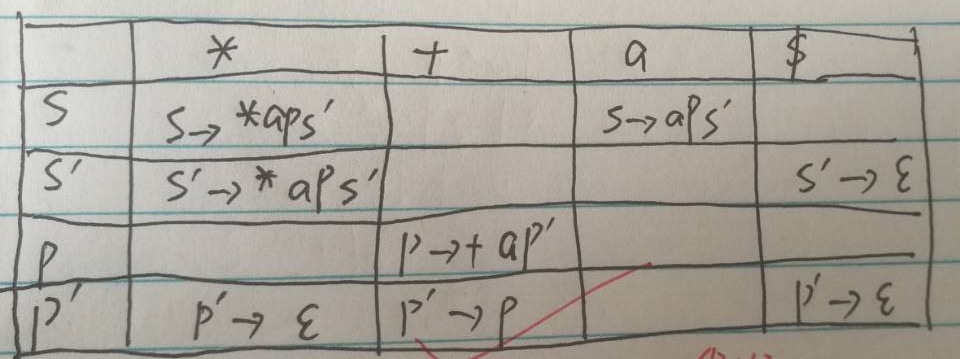 * + a $
S S→*aPS' S→aPS'
S' S'→*aPS' S'→ε
P P→+aP'
P' P'→ε P'→P P'→ε